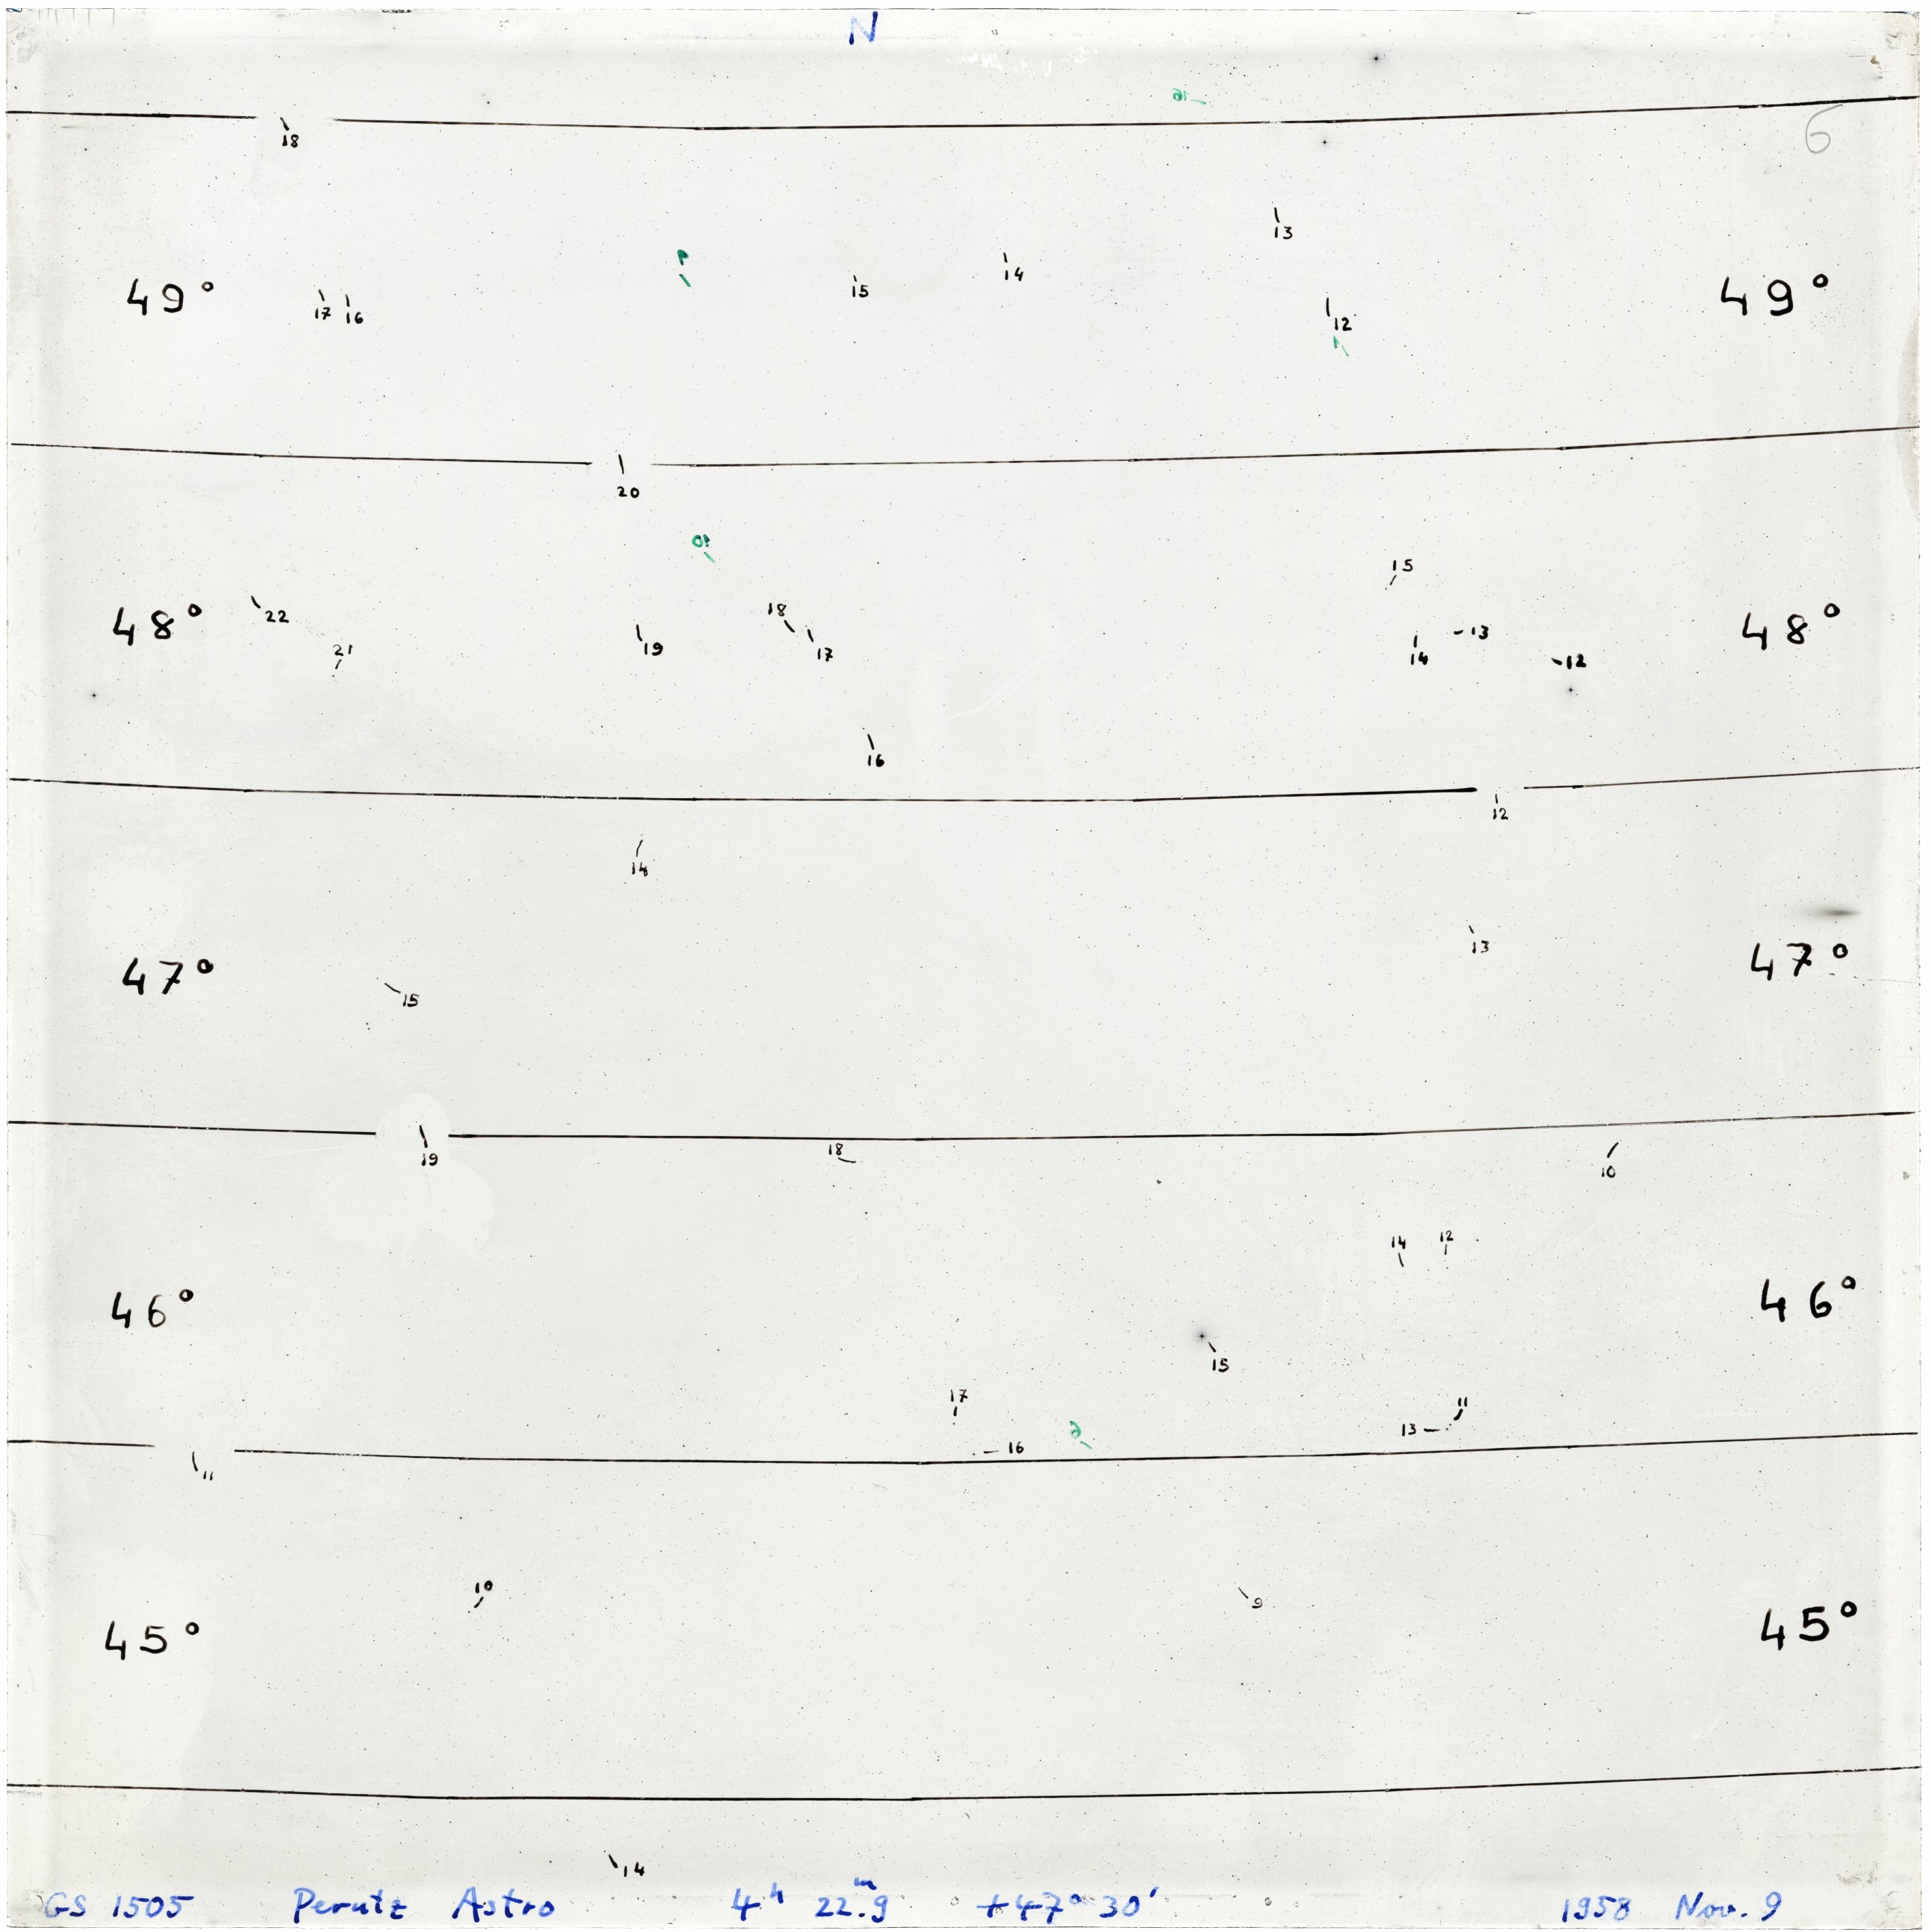 N
16
6
18
13
14
15
49° 17 16 12 49°
20
10
15
48° 22 18 13 48°
21 19 17 14 12
16
12
14
13
47° 15 47°
19 18 10
14 12
46° 46°
15
17 11
13
16 6
11
10 9
45° 45°
14
GS 1505 Perutz Astro 4ʰ 22.ᵐ9 +47° 30' 1958 Nov. 9